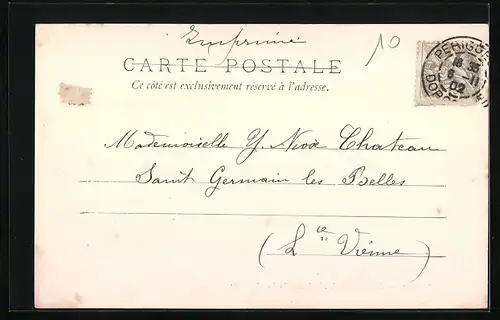 Imprimé
10
CARTE POSTALE
Ce côté est exclusivement réservé à l'adresse.
PÉRIGUEUX
6 -11
02
DORDOGNE
Mademoiselle Y. Chateau
Saint Germain les Belles
(Hte Vienne)